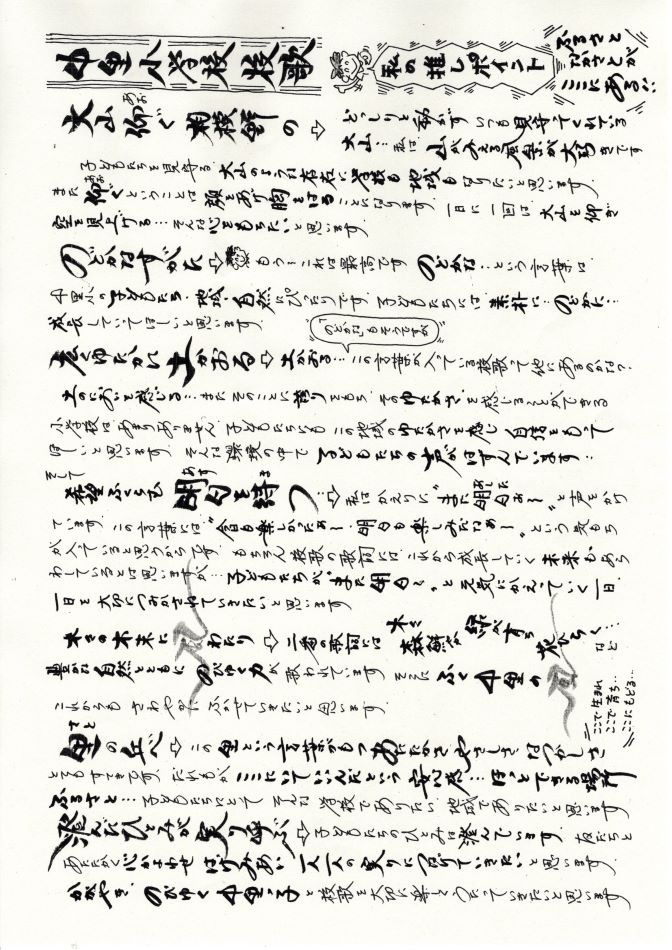 中里小学校校歌
私の推しポイント
ふるさと
なかさとが
ここにある!!
大山仰ぐ相模野の⇨
あお
どっしりと動かずいつも見守ってくれている
大山…私は山がみえる風景が大好きです
子どもたちを見守る大山のように存在に学校も地域もなりたいと思います。
また仰ぐということは顔をあげ胸をはることになります。一日に一回は大山を仰ぎ
あお
空を見上げる…そんな心をもちたいと思います。
のどかなすがたに⇨もう!これは最高です のどかな…という言葉は
中里小の子どもたち、地域、自然にぴったりです。子どもたちには素朴に…のどかに…
成長していってほしいと思います。
"のどかだ"もそうですが
麦ゆたかに土かおる⇨土かおる…この言葉が入っている校歌って他にあるのかな?
土のにおいを感じる…またそのことに誇りをもち、そのゆたかさを感じることができる
小学校はあまりありません。子どもたちにもこの地域のゆたかさを感じ自信をもって
ほしいと思います。そんな環境の中で子どもたちの声がはずんでいます…
そして
希望ふくらむ明日を待つ⇨私はかえりに"また明日ね〜"と声をかけ
あす
ま
あした
ています。この言葉には"今日も楽しかったね〜明日も楽しみだね〜"という気もち
が入っていると思うからです。もちろん校歌の歌詞には、これから成長していく未来もあら
わしているとは思いますが…子どもたちが"また明日〜"と元気にかえっていく一日
一日を大切につみかさねていきたいと思います
木々の木末に風わたり⇨二番の歌詞には 木々 森鮮か 緑がすむ 花ひらく…
など
豊かな自然とともにのびゆく力が歌われています そこにふく中里の風
これからもさわやかにふかせていきたいと思います。
ここで生まれ
ここで育ち…
ここにもどる…
さと
里の丘べ⇨この里という言葉がもつあたたかさ やさしさ なつかしさ
とてもすてきです。だれもがここにいていいんだという安心感…ほっとできる場所
ふるさと…子どもたちにとってそんな学校でありたい 地域でありたいと思います
澄んだひとみが実り呼ぶ⇨子どもたちのひとみは澄んでいます。友だちと
あたたかく心かよわせはげみあい一人一人の実りにつなげていきたいと思います。
かがやき、のびゆく中里っ子と校歌を大切に楽しくうたっていきたいと思います